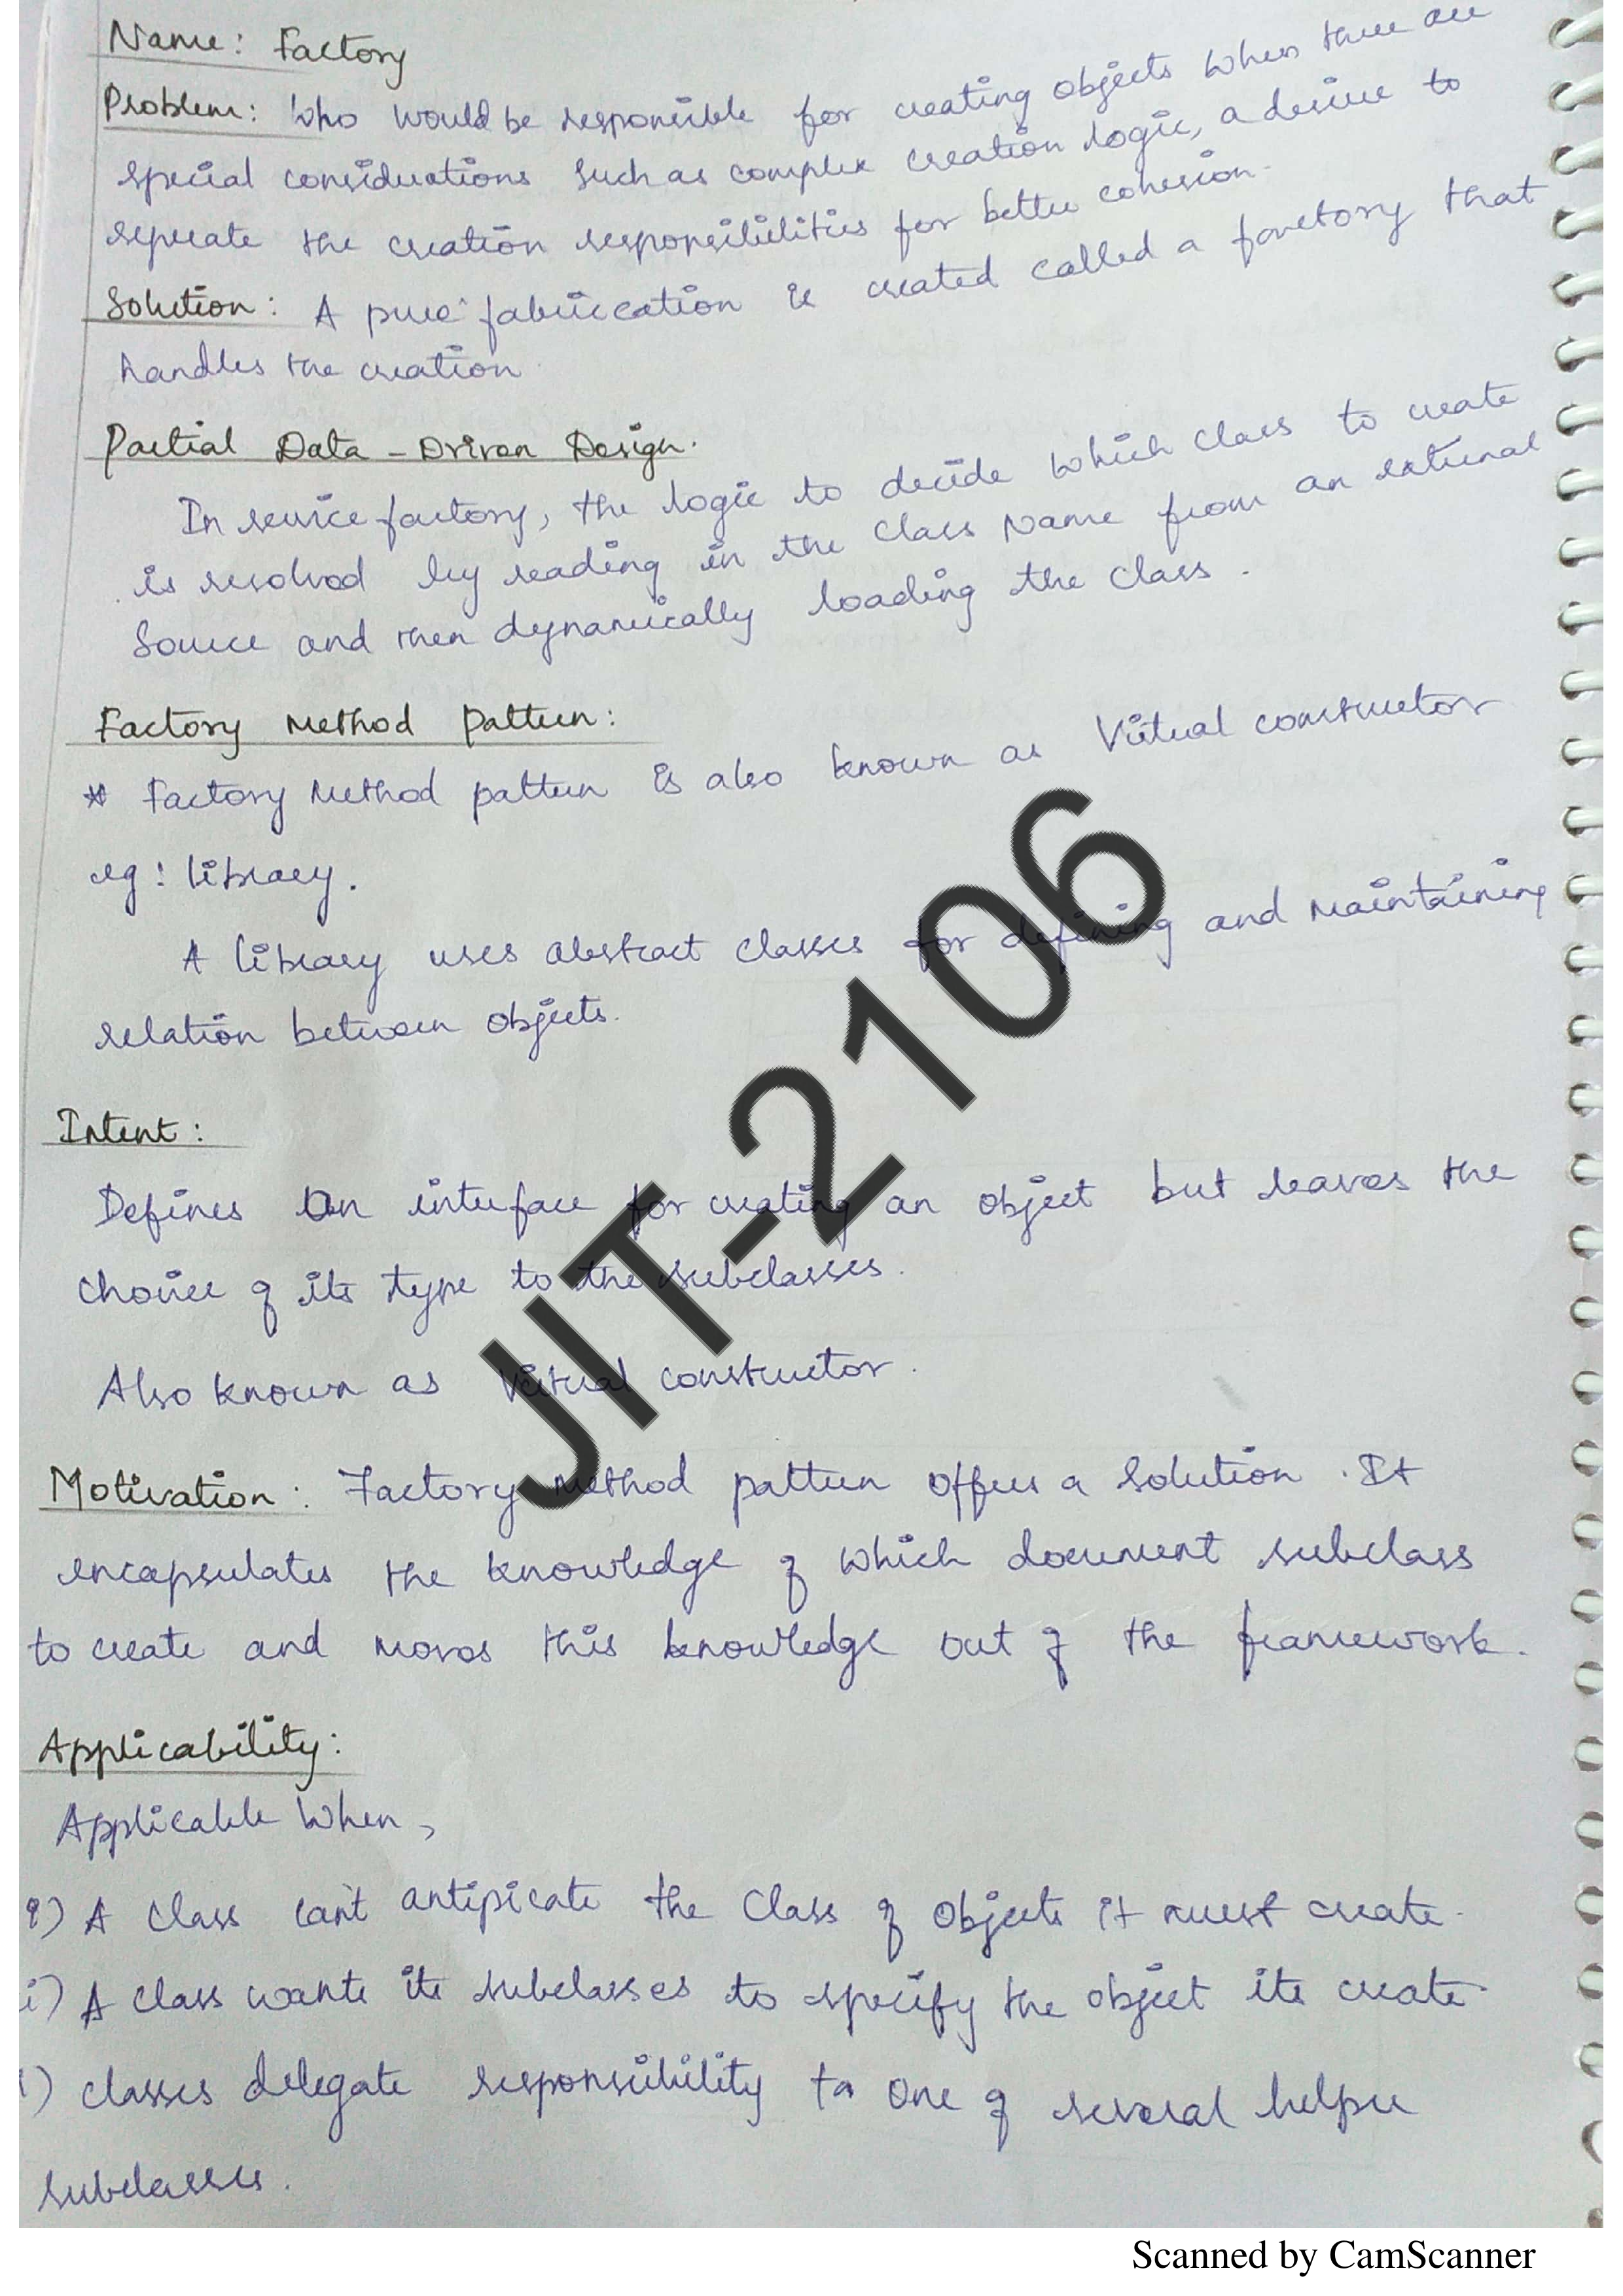 Name: Factory
Problem: Who would be responsible for creating objects when there are
special considerations such as complex creation logic, a desire to
seperate the creation responsibilities for better cohesion.
Solution: A pure fabrication is created called a fanctory that
handles the creation.
Partial Data-Driven Design.
In service factory, the logic to decide which class to create
is resolved by reading in the class Name from an external
Source and then dynamically loading the class.
Factory Method Pattern:
* Factory Method pattern is also known as Virtual constructor
eg: library.
A library uses abstract classes for defining and maintaining
relation between objects.
Intent:
Defines an interface for creating an object but leaves the
choice of its type to the subclasses.
Also known as Virtual constructor.
Motivation: Factory Method pattern offers a solution. It
encapsulates the knowledge of which document subclass
to create and moves this knowledge out of the framework.
Applicability:
Applicable when,
i) A class can't antipicate the class of objects it must create.
i) A class wants its subclasses to specify the object its create.
i) classes delegate responsibility to one of several helper
subclasses.
JIT-2106
Scanned by CamScanner